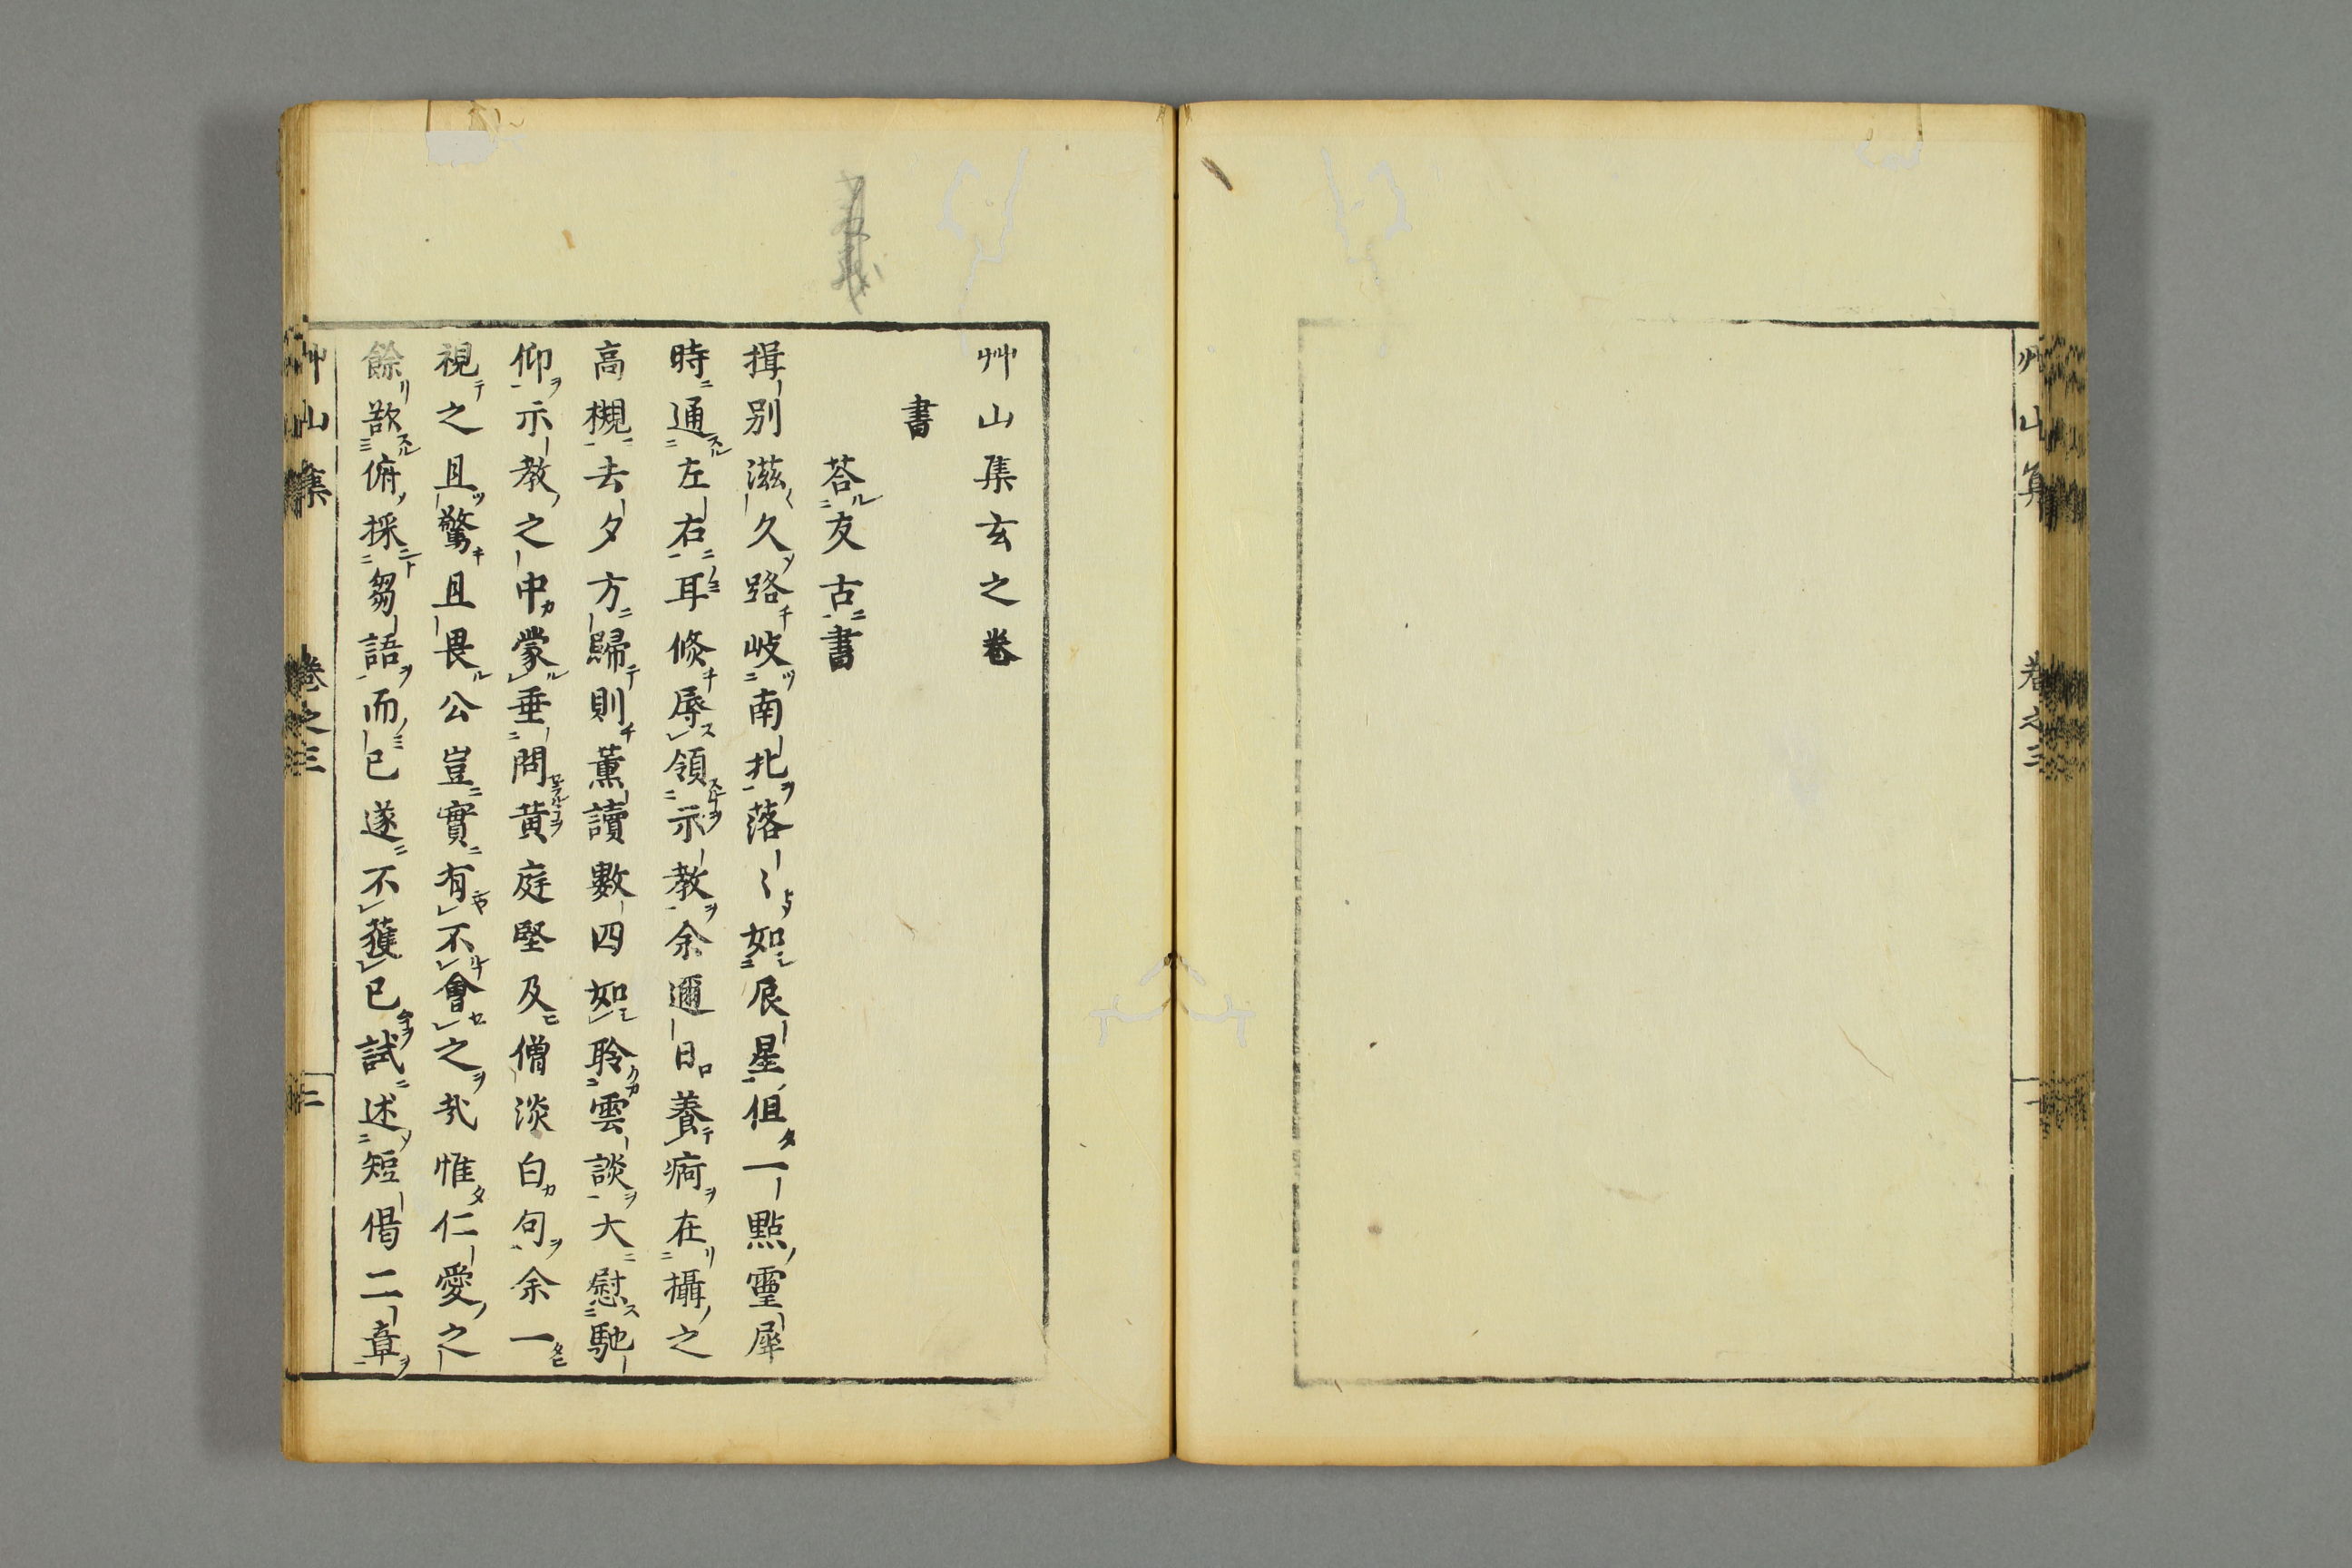 艸山集
卷之三
艸山集玄之卷
書
荅友古書
揖別滋久路岐南北落〻如辰星但一點靈犀
時通左右耳倐辱領示教余邇日養痾在攝之
高槻去夕方歸則薰讀數四如聆雲談大慰馳
仰示教之中蒙垂問黄庭堅及僧淡白句余一
視之且驚且畏公豈實有不會之哉惟仁愛之
餘欲俯採蒭語而已遂不獲已試述短偈二章
艸山集
卷之三
二